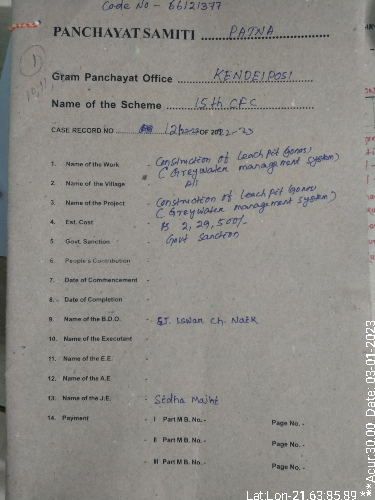 Code No - 66121377
PANCHAYAT SAMITI PATNA
Gram Panchayat Office KENDEIPOSI
Name of the Scheme 15th CFC
CASE RECORD NO OF 2022-23
1. Name of the Work - Construction of Leach pit
(Greywater management system)
2. Name of the Village - All
3. Name of the Project - Construction of Leach pit
(Greywater management system)
4. Est. Cost - Rs 2,29,500/-
5. Govt. Sanction - Govt Sanction
6. People's Contribution -
7. Date of Commencement -
8. Date of Completion -
9. Name of the B.D.O. - Iswar Ch. Naik
10. Name of the Executant -
11. Name of the E.E. -
12. Name of the A.E -
13. Name of the J.E. - Sidha Majhi
14. Payment - I Part M B. No. - Page No. -
- II Part M B. No. - Page No. -
- III Part M B. No. - Page No. -
Lat:Lon-21.63:85.89
***Acur:30.00, Date: 03-01-2023